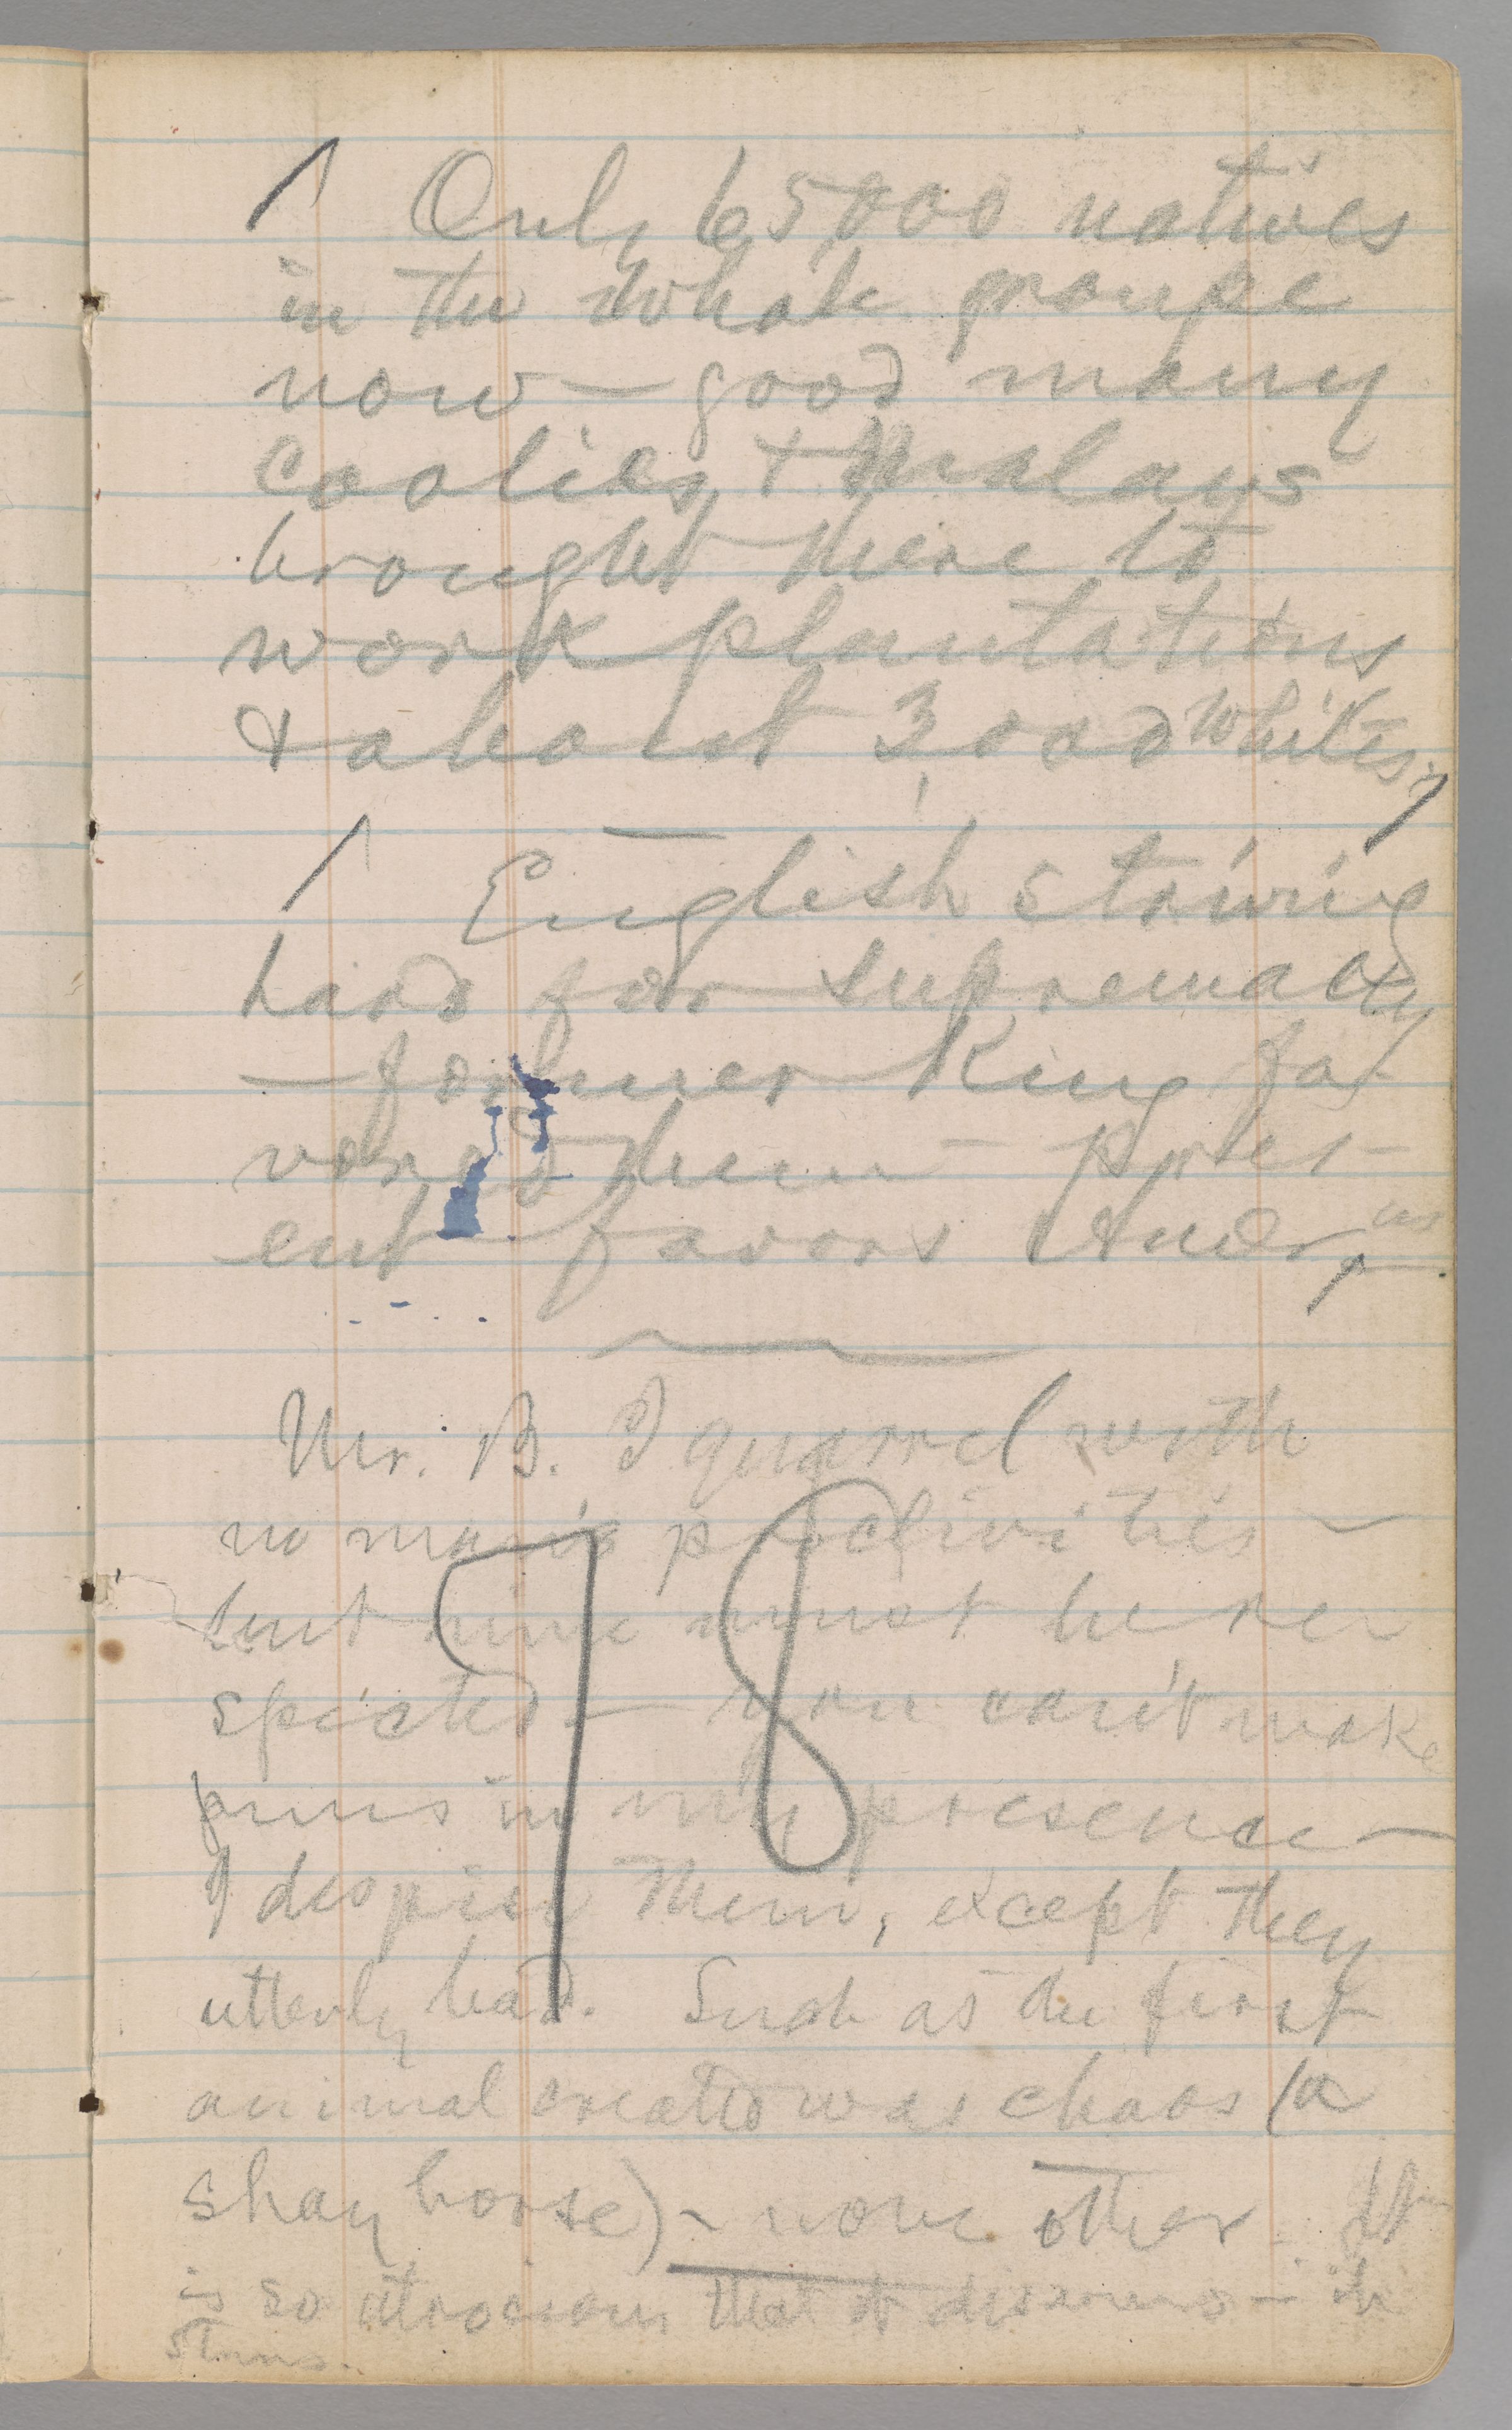 Only 65000 natives
in the whole groupe
now — good many
coolies & Malays
brought there to
work plantations
& about 3,000 whites.
English striving
hard for supremacy
— former King fa-
vored them — pres-
ent favors Amer.ns
Mr. B. I quarrel with
no man's proclivities —
but mine must be re-
spected — you can't make
puns in my presence —
I despise them, except they
utterly bad. Such as the first
animal created was chaos (a
shay horse) — none other It
is so atrocious that it disarms — it
stuns.
78